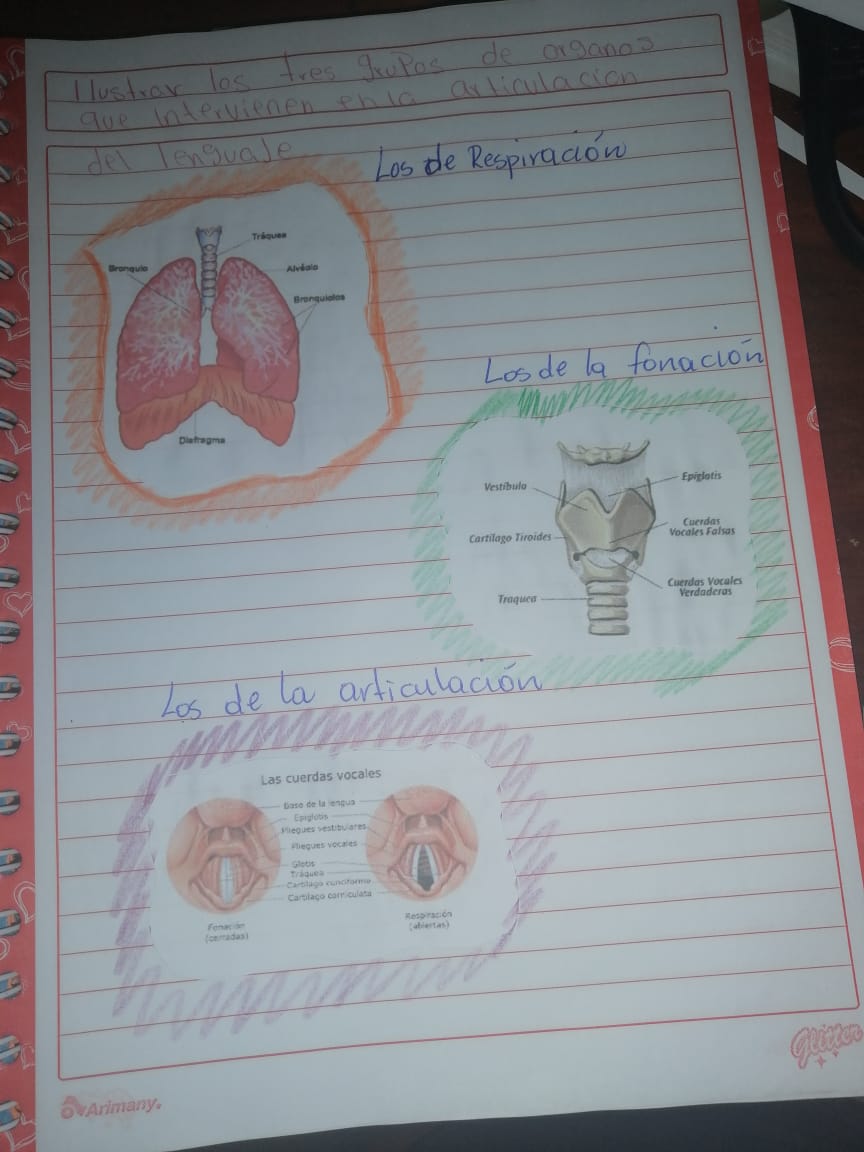 Ilustrar los tres grupos de organos
que intervienen en la articulacion
del lenguaje
Los de Respiración
Tráquea
Bronquio
Alvéolo
Bronquiolos
Diafragma
Los de la fonación
Vestíbulo
Epíglotis
Cartílago Tiroides
Cuerdas
Vocales Falsas
Cuerdas Vocales
Verdaderas
Traquea
Los de la articulación
Las cuerdas vocales
Base de la lengua
Epiglotis
Pliegues vestibulares
Pliegues vocales
Glotis
Tráquea
Cartílago cuneiforme
Cartílago corniculata
Fonación
(cerradas)
Respiración
(abiertas)
Glitter
Arimany.